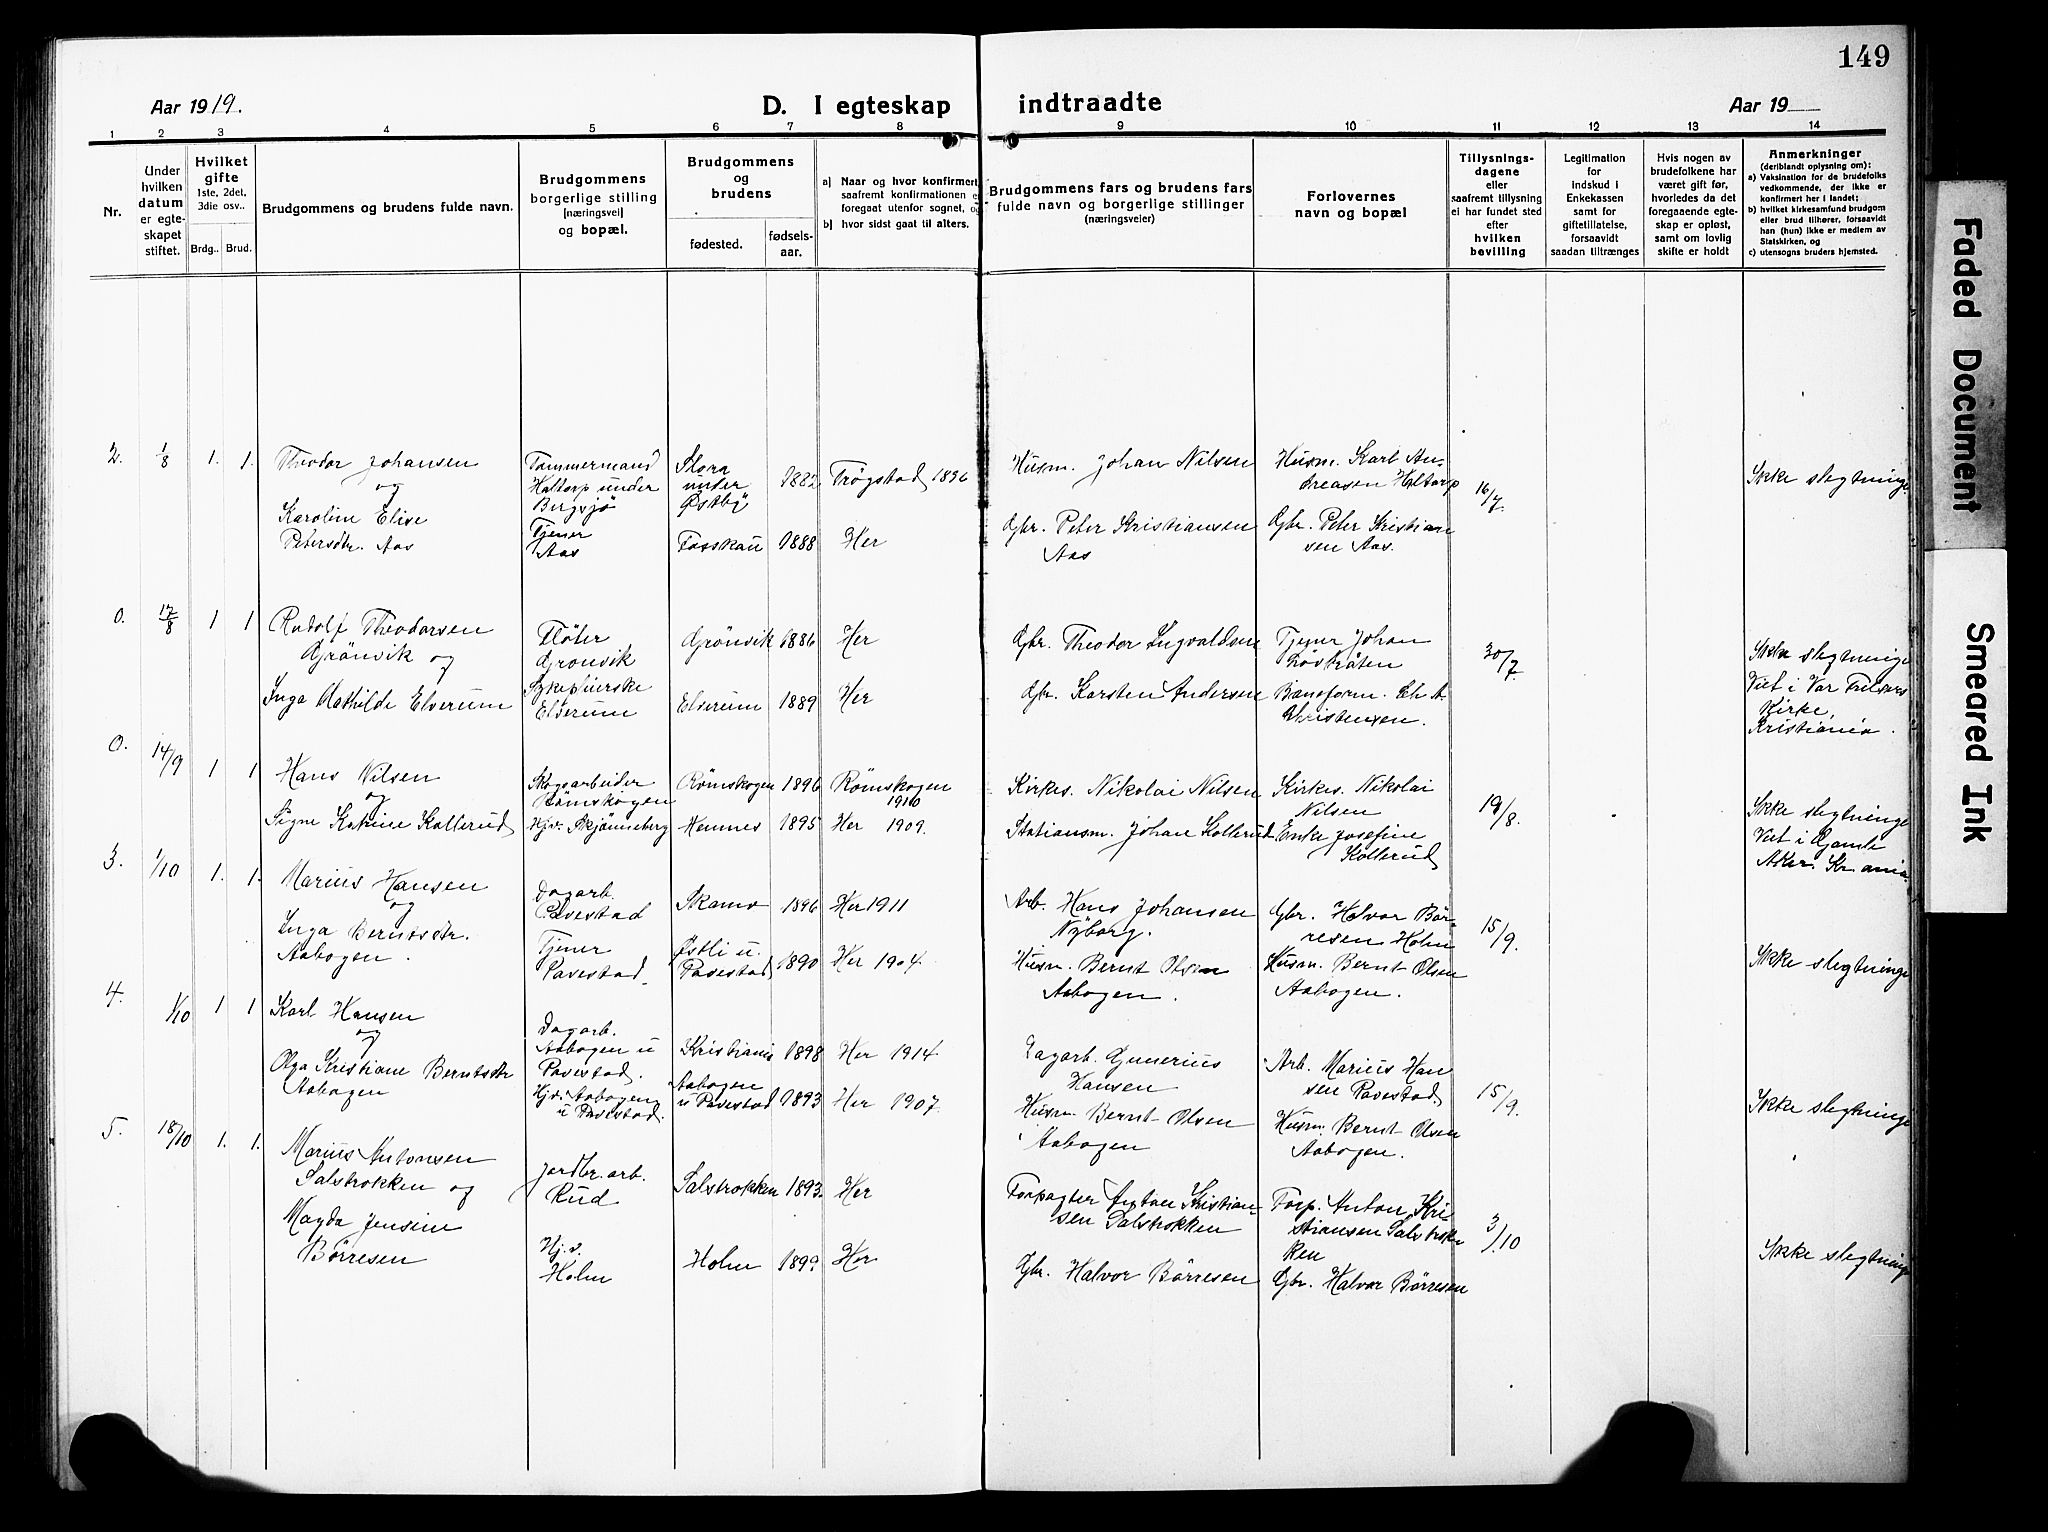 149
Aar 1919.
D. I egteskap indtraadte
Aar 19
1 2 3 4 5 6 7 8 9 10 11 12 13 14
Nr.
Under
hvilken
datum
er egte-
skapet
stiftet.
Hvilket
gifte
1ste, 2det,
3die osv..
Brdg.. Brud.
Brudgommens og brudens fulde navn.
Brudgommens
borgerlige stilling
(næringsvei)
og bopæl.
Brudgommens
og
brudens
fødested.
fødsels-
aar.
a) Naar og hvor konfirmert,
saafremt konfirmationen er
foregaat utenfor sognet, og
b) hvor sidst gaat til alters.
Brudgommens fars og brudens fars
fulde navn og borgerlige stillinger
(næringsveier)
Forlovernes
navn og bopæl
Tillysnings-
dagene
eller
saafremt tillysning
ei har fundet sted
efter
hvilken
bevilling
Legitimation
for
indskud i
Enkekassen
samt for
giftetillatelse,
forsaavidt
saadan tiltrænges
Hvis nogen av
brudefolkene har
været gift før,
hvorledes da det
foregaaende egte-
skap er opløst,
samt om lovlig
skifte er holdt
Anmerkninger
(deriblandt oplysning om):
a) Vaksination for de brudefolks
vedkommende, der ikke er
konfirmert her i landet;
b) hvilket kirkesamfund brudgom
eller brud tilhører, forsaavidt
han (hun) ikke er medlem av
Statskirken, og
c) utensogns bruders hjemsted.
2. 1/8 1. 1.
Theodor Johansen
og
Karoline Elise
Petersdtr. Aas
Tømmermand
Haltorp under
Bergsjö
Tjener
Aas
Flora
under
Østby
1882
Trøgstad 1896
Fosskau 1888 Her
Husm. Johan Nilsen
Gbr. Peter Kristiansen
Aas
Husm. Karl An-
dreasen Haltorp
Gbr. Peter Kristian
sen Aas.
16/7.
Ikke slegtninge
0. 17/8 1 1
Rudolf Theodorsen
Grönvik og
Inga Mathilde Elverum
Fløter
Grönvik
Sykepleierske
Elverum
Grönvik 1886 Her
Elverum 1889 Her
Gbr. Theodor Ingvaldsen
Gbr. Karsten Andersen
Tjener Johan
Baneform. Ch. A.
Christensen.
30/7.
Ikke slegtninge
Viet i Vor Frelsers
Kirke,
Kristiania.
0. 14/9 1 1
Hans Nilsen
og
Signe Katrine Kollerud
Skogsarbeider
Römskogen
Hjv. Skjönneberg
Römskogen 1896 Römskogen
1910
Hemnes 1895 Her 1909.
Kirkes. Nikolai Nilsen
Stationsm. Johan Kollerud
Kirkes. Nikolai
Nilsen
Enke Josefine
Kollerud
19/8.
Ikke slegtninge
Viet i Gamle
Aker. Kr.ania.
3. 1/10 1. 1.
Marius Hansen
og
Inga Berntsdtr.
Aabogen.
Dagarb.
Pavestad
Tjener
Pavestad.
Skamo 1896 Her 1911
Østli u.
Pavestad 1890 Her 1904.
Arb. Hans Johansen
Nyborg.
Husm. Bernt Olsen
Aabogen.
Gbr. Halvor Bör-
resen Holm
Husm. Bernt Olsen
Aabogen.
15/9.
Ikke slegtninge
4. 1/10 1 1
Karl Hansen
og
Olga Kristiane Berntsdtr
Aabogen
Dagarb.
Aabogen u
Pavestad.
Hjv. Aabogen
u Pavestad.
Kristiania 1898 Her 1914.
Aabogen
u Pavestad 1893 Her 1907.
Dagarb. Gunerius
Hansen
Husm. Bernt Olsen
Aabogen
Arb. Marius Han
sen Pavestad
Husm. Bernt Olsen
Aabogen.
15/9.
Ikke slegtninge
5. 18/10 1. 1.
Marius Antonsen
Salsrokken og
Magda Jensine
Börresen
Jordbr. arb.
Rud
Hj.v.
Holm
Salsrokken 1893. Her
Holm 1899 Her
Forpagter Anton Kristian-
sen Salsrokken
Gbr. Halvor Börresen
Forp. Anton Kri-
stiansen Salsrok
ken
Gbr. Halvor Börresen
3/10
Ikke slegtninge
Faded Document
Smeared Ink